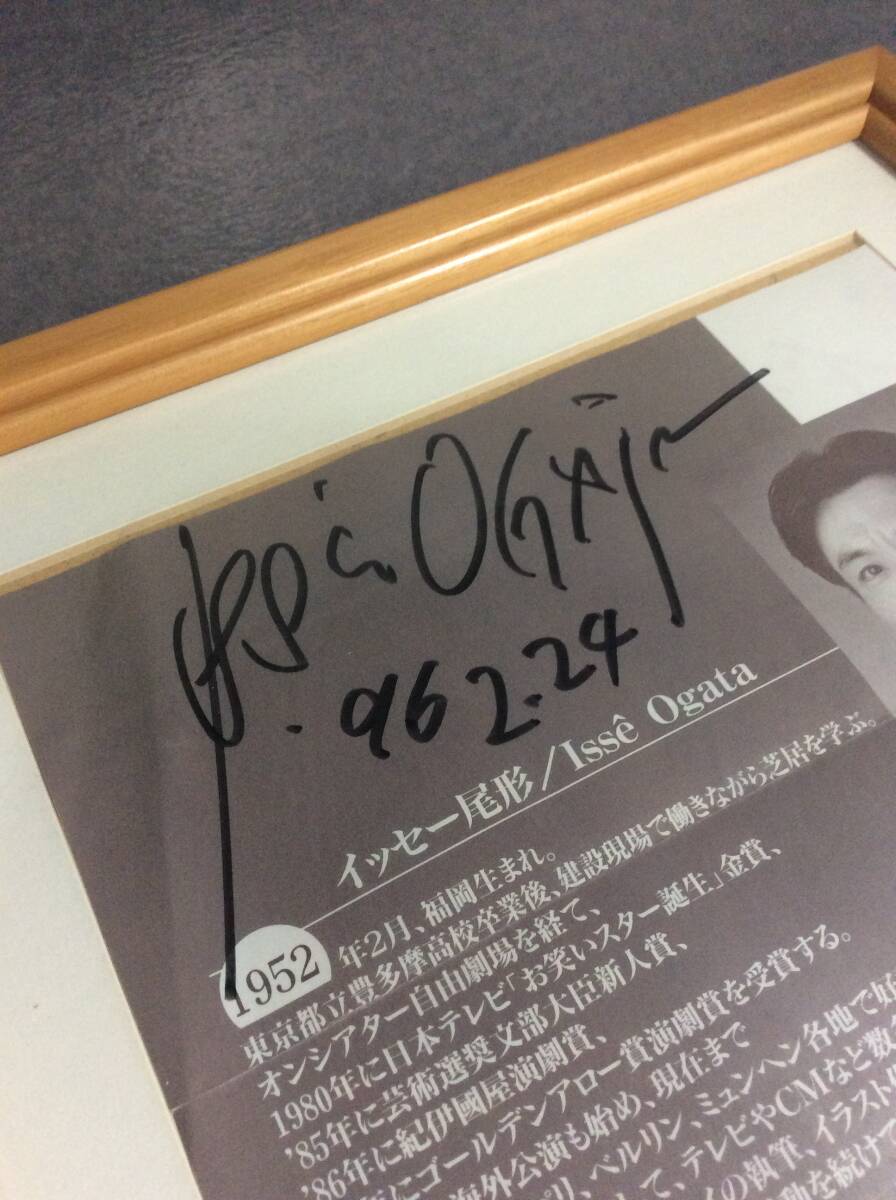 Issé Ogata
'96 2.24
イッセー尾形/Issê Ogata
1952年2月、福岡生まれ。
東京都立豊多摩高校卒業後、建設現場で働きながら芝居を学ぶ。
オンシアター自由劇場を経て、
1980年に日本テレビ「お笑いスター誕生」金賞、
'85年に芸術選奨文部大臣新人賞、
'86年に紀伊國屋演劇賞、
年にゴールデンアロー賞演劇賞を受賞する。
海外公演も始め、現在まで
ベルリン、ミュンヘン各地で
て、テレビやCMなど数
の執筆、イラスト
を続けて